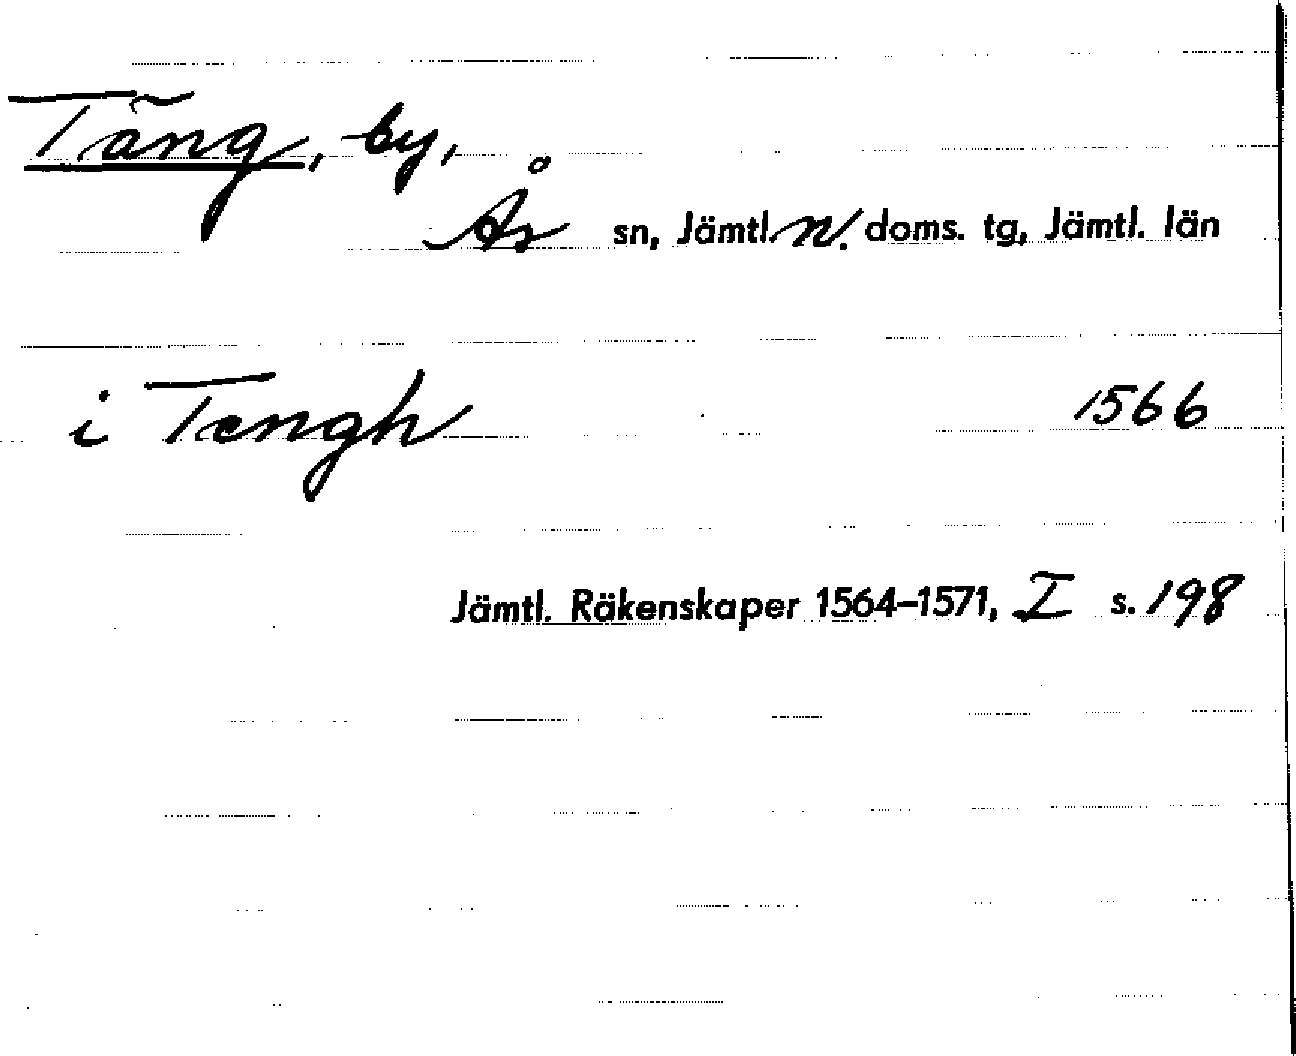 Täng, by,
Ås sn, Jämtl. n. doms. tg, Jämtl. län
i Tengh 1566
Jämtl. Räkenskaper 1564–1571, I s. 198